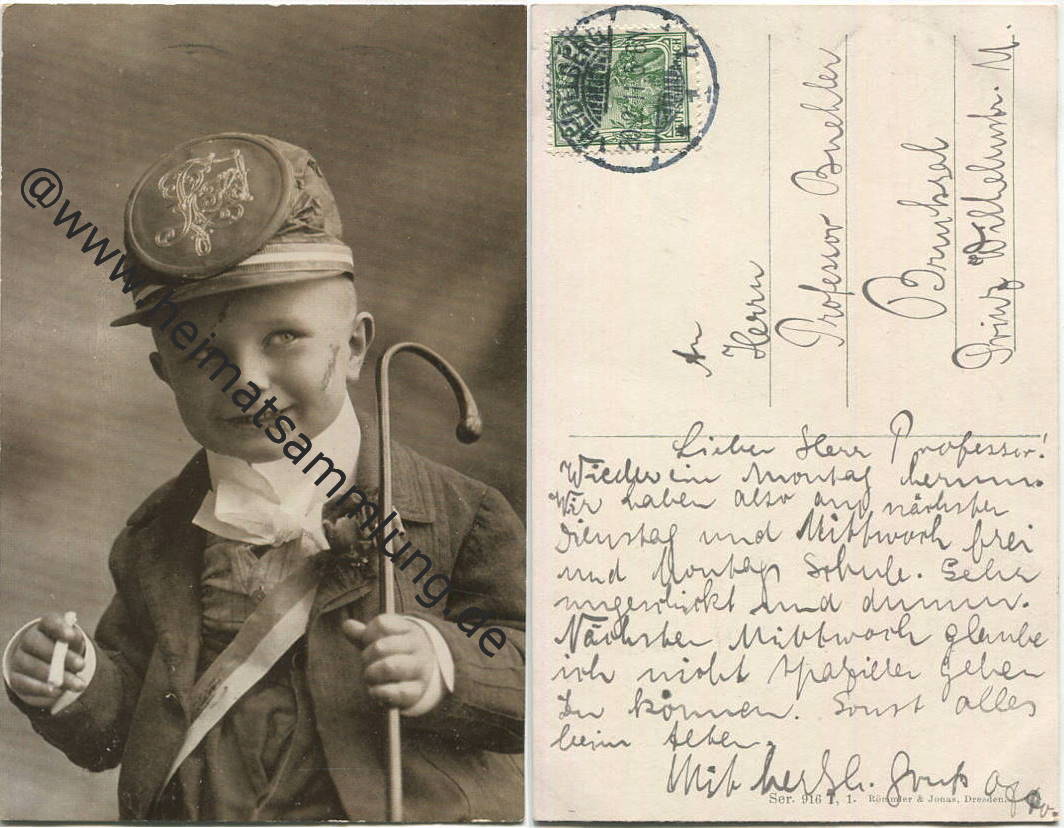 @www.heimatsammlung.de
HEIDELBERG
An
Herrn
Professor Buehler
Bruchsal
Prinz Wilhelmstr. 11.
Lieber Herr Professor!
Wieder ein Montag herum.
Wir haben also am nächsten
Dienstag und Mittwoch frei
und Montags Schule. Sehr
ungeschickt und dumm.
Nächsten Mittwoch glaube
ich nicht spazieren gehen
zu können. Sonst alles
beim Alten.
Mit herzl. Gruß
Ser. 916 1, 1. Römmler & Jonas, Dresden.